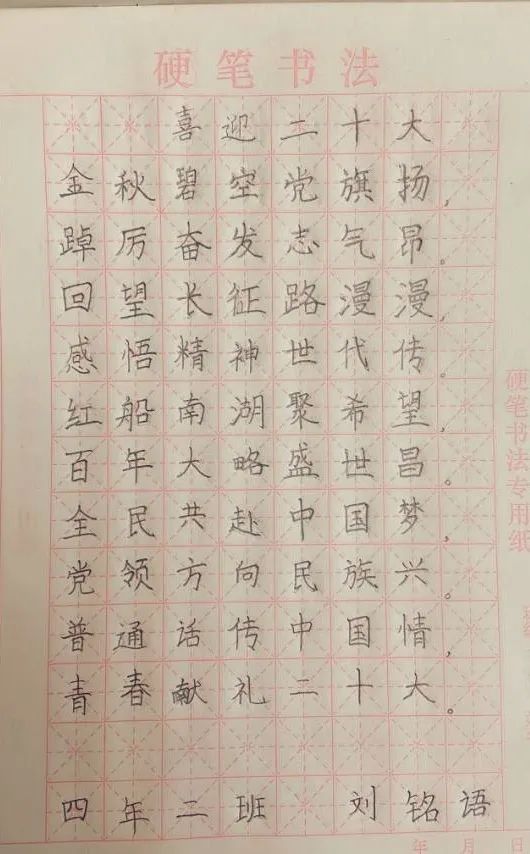 硬笔书法
喜迎二十大
金秋碧空党旗扬,
踔厉奋发志气昂。
回望长征路漫漫,
感悟精神世代传。
红船南湖聚希望,
百年大略盛世昌。
全民共赴中国梦,
党领方向民族兴。
普通话传中国情,
青春献礼二十大。
四年二班 刘铭语
硬笔书法专用纸
年 月 日